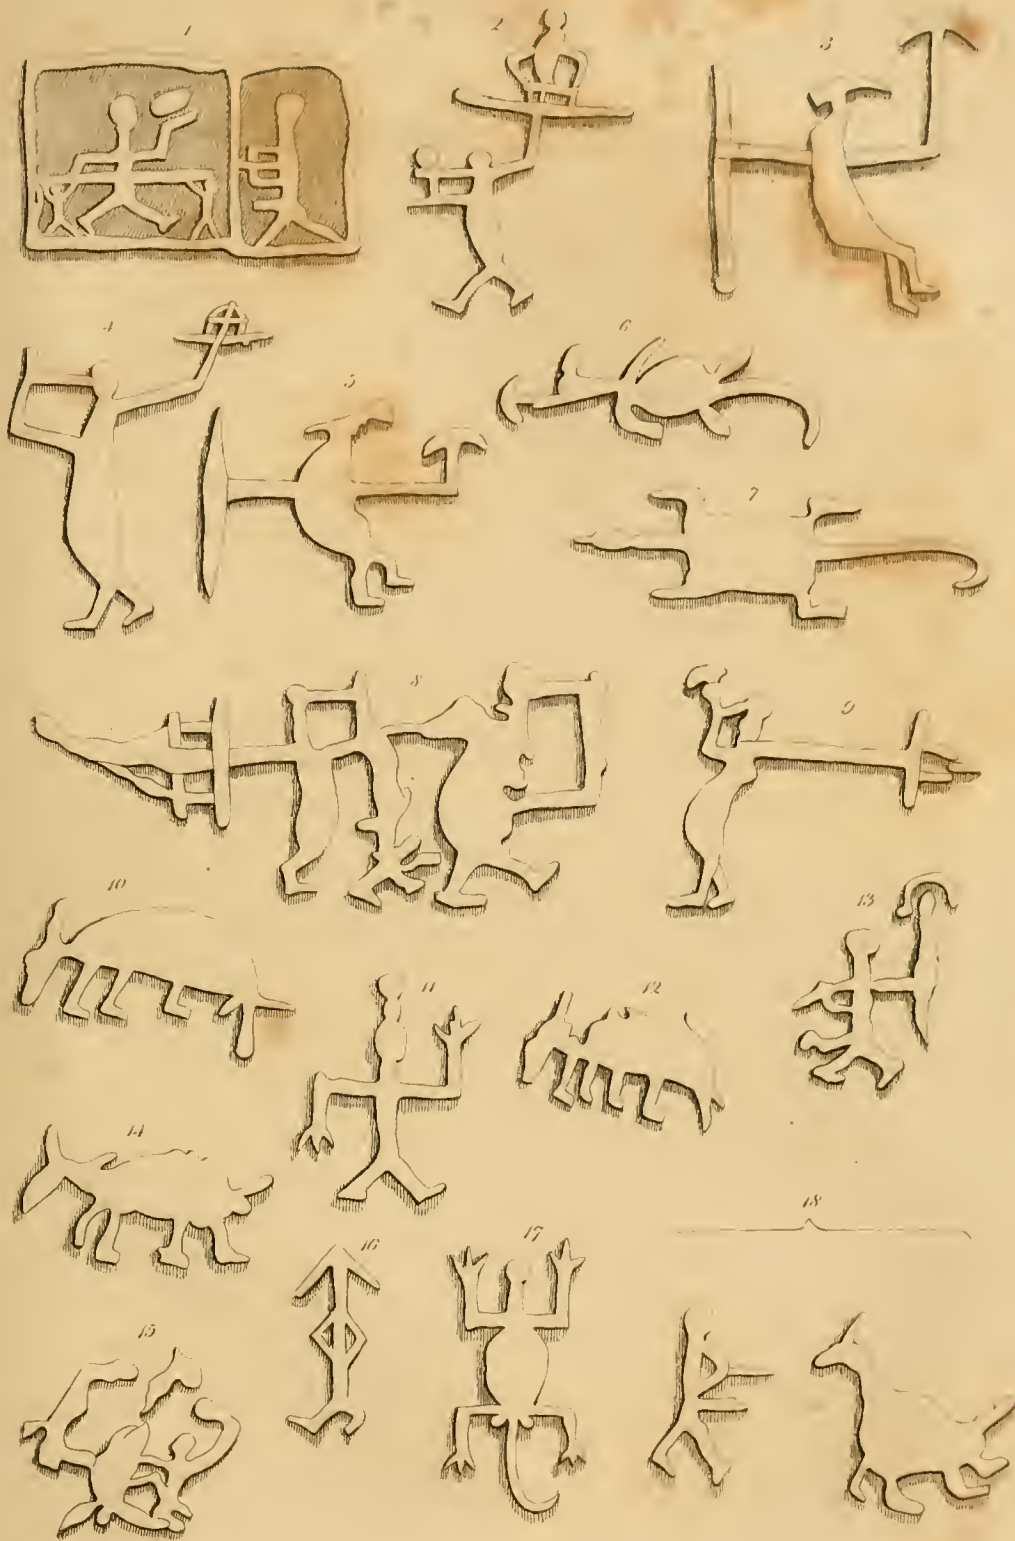 1
2
3
4
5
6
7
8
9
10
11
12
13
14
15
16
17
18